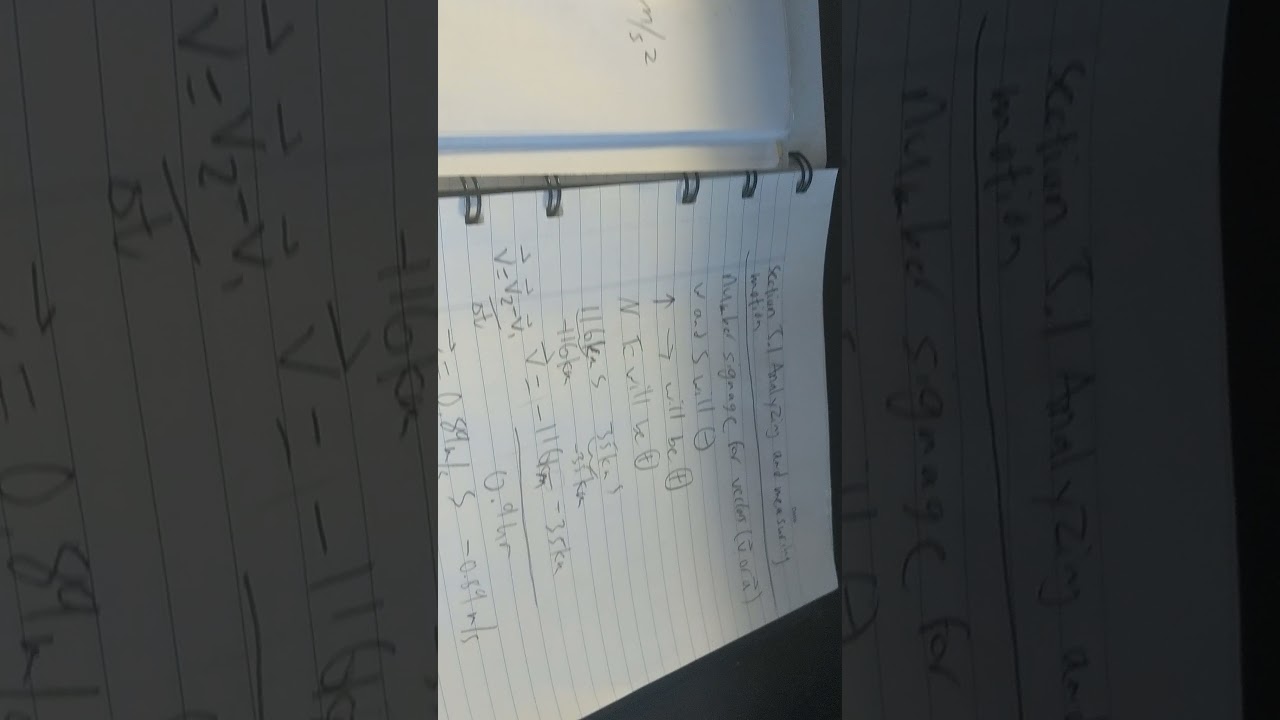 m/s²
Section 3.1 Analyzing and measuring
motion
Number signage for vectors (v⃗ or a⃗)
W and S will ⊖
↑ → will be ⊕
N E will be ⊕
116km S 35km S
-116km -35km
v⃗ = v⃗2 - v⃗1 v⃗ = -116km - 35km
Δt 0.9hr
= 0.89m/s S -0.89m/s